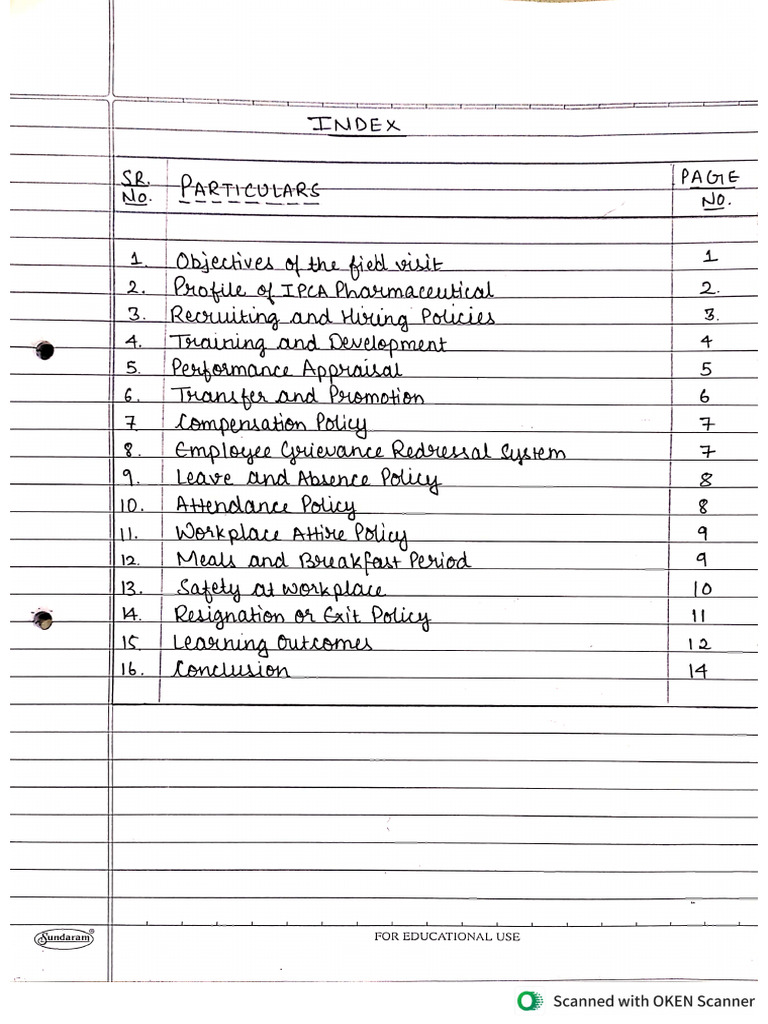 INDEX
SR. No. PARTICULARS PAGE No.
1. Objectives of the field visit 1
2. Profile of IPCA Pharmaceutical 2.
3. Recruiting and Hiring Policies 3.
4. Training and Development 4
5. Performance Appraisal 5
6. Transfer and Promotion 6
7. Compensation Policy 7
8. Employee Grievance Redressal System 7
9. Leave and Absence Policy 8
10. Attendance Policy 8
11. Workplace Attire Policy 9
12. Meals and Breakfast Period 9
13. Safety at workplace 10
14. Resignation or Exit Policy 11
15. Learning Outcomes 12
16. Conclusion 14
Sundaram®
FOR EDUCATIONAL USE
Scanned with OKEN Scanner